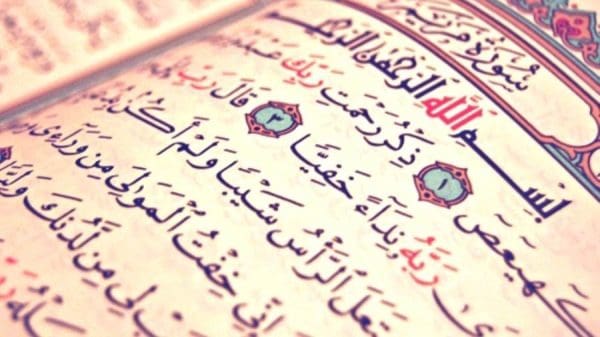 سُورَةُ مَرْيَمَ
بِسْمِ اللَّهِ الرَّحْمَٰنِ الرَّحِيمِ
كٓهيعٓصٓ ١ ذِكْرُ رَحْمَتِ رَبِّكَ
ىٰ رَبَّهُۥ نِدَآءً خَفِيًّا ٣ قَالَ رَبِّ
تَعَلَ ٱلرَّأْسُ شَيْبًا وَلَمْ أَكُنۢ
إِنِّى خِفْتُ ٱلْمَوَٰلِىَ مِن وَرَآءِى
بْ لِى مِن لَّدُنكَ